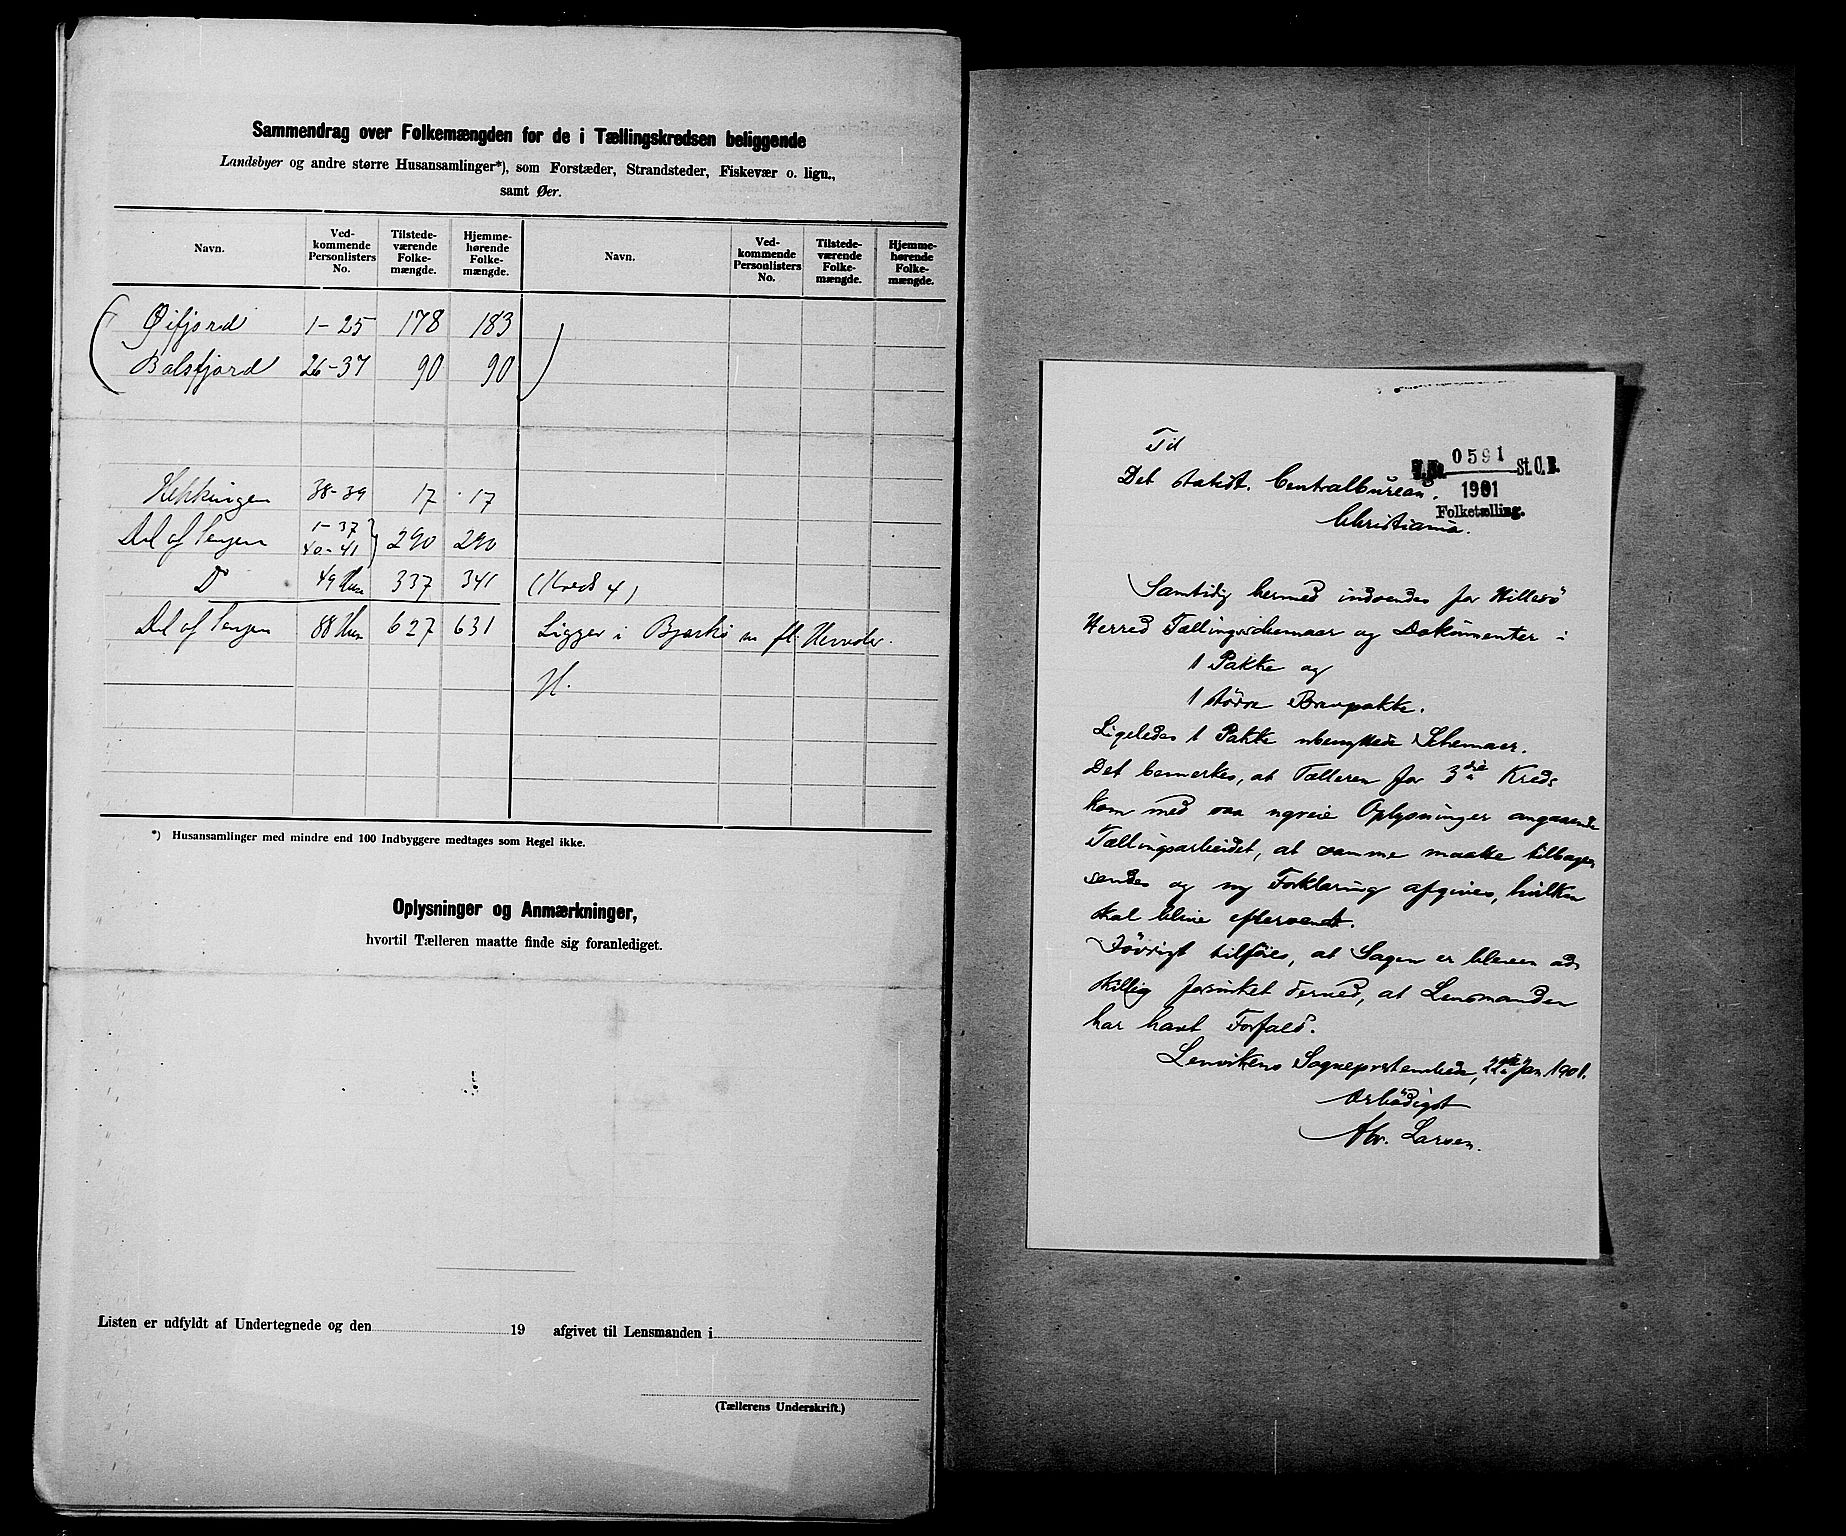 Sammendrag over Folkemængden for de i Tællingskredsen beliggende
Landsbyer og andre større Husansamlinger*), som Forstæder, Strandsteder, Fiskevær o. lign.,
samt Øer.
Navn. Ved-kommende Personlisters No. Tilstede-værende Folke-mængde. Hjemme-hørende Folke-mængde. Navn. Ved-kommende Personlisters No. Tilstede-værende Folke-mængde. Hjemme-hørende Folke-mængde.
( Øifjord 1-25 178 183 )
Balsfjord 26-37 90 90
Hekkingen 38-39 17 17
Del af Senjen 1-37 40-41 } 290 290
D 49 Hus 337 341 (Kreds 4)
Del af Senjen 88 Hus 627 631 Ligger i Bjarkö m fl. Herreder.
H.
*) Husansamlinger med mindre end 100 Indbyggere medtages som Regel ikke.
Oplysninger og Anmærkninger,
hvortil Tælleren maatte finde sig foranlediget.
Listen er udfyldt af Undertegnede og den 19 afgivet til Lensmanden i
(Tællerens Underskrift.)
Til
Det statist. Centralbureau.
Christiania.
J.No. 0591 St.C.B.
1901
Folketælling.
Samtidig hermed indsendes for Hillesö
Herred Tællingsschemaer og Dokumenter i
1 Pakke og
1 större Brevpakke.
Ligeledes 1 Pakke ubenyttede Schemaer.
Det bemerkes, at Tælleren for 3die Kreds
kom med saa ugreie Oplysninger angaaende
Tællingsarbeidet, at samme maatte tilbage
sendes og ny Forklaring afgives, hvilken
skal blive eftersendt.
Iövrigt tilföies, at Sagen er bleven ad
skillig forsinket derved, at Lensmanden
har havt Forfald.
Lenvikens Sogneprestembede, 22de Jan 1901.
Ærbödigst
Abr. Larsen.